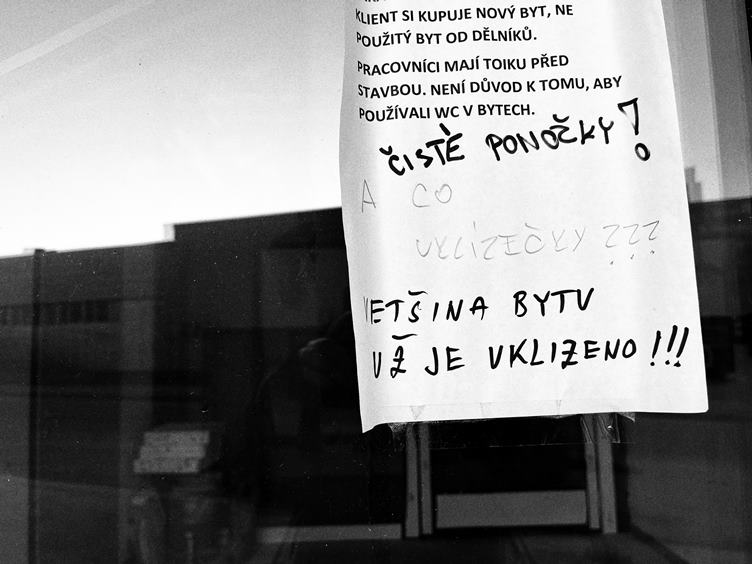 KLIENT SI KUPUJE NOVÝ BYT, NE
POUŽITÝ BYT OD DĚLNÍKŮ.
PRACOVNÍCI MAJÍ TOIKU PŘED
STAVBOU. NENÍ DŮVOD K TOMU, ABY
POUŽÍVALI WC V BYTECH.
ČISTÉ PONOČKY!
A CO
UKLÍZEČKY ???
VETŠINA BYTU
UŽ JE UKLIZENO !!!